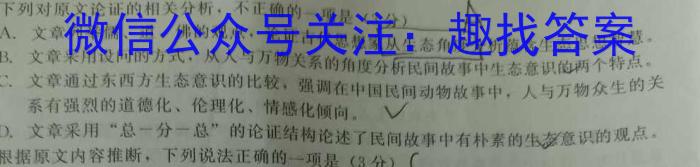 下列对原文论证的相关分析，不正确的一项是（3分）
微信公众号关注：趣找答案
A. 文章
B. 文章采用设问的方式，从人与万物关系的角度分析民间故事中生态意识的两个特点。
C. 文章通过东西方生态意识的比较，强调在中国民间动物故事中，人与万物众生的关
系有强烈的道德化、伦理化、情感化倾向。
D. 文章采用“总－分－总”的论证结构论述了民间故事中有朴素的生态意识的观点。
根据原文内容推断，下列说法正确的一项是（3分）（